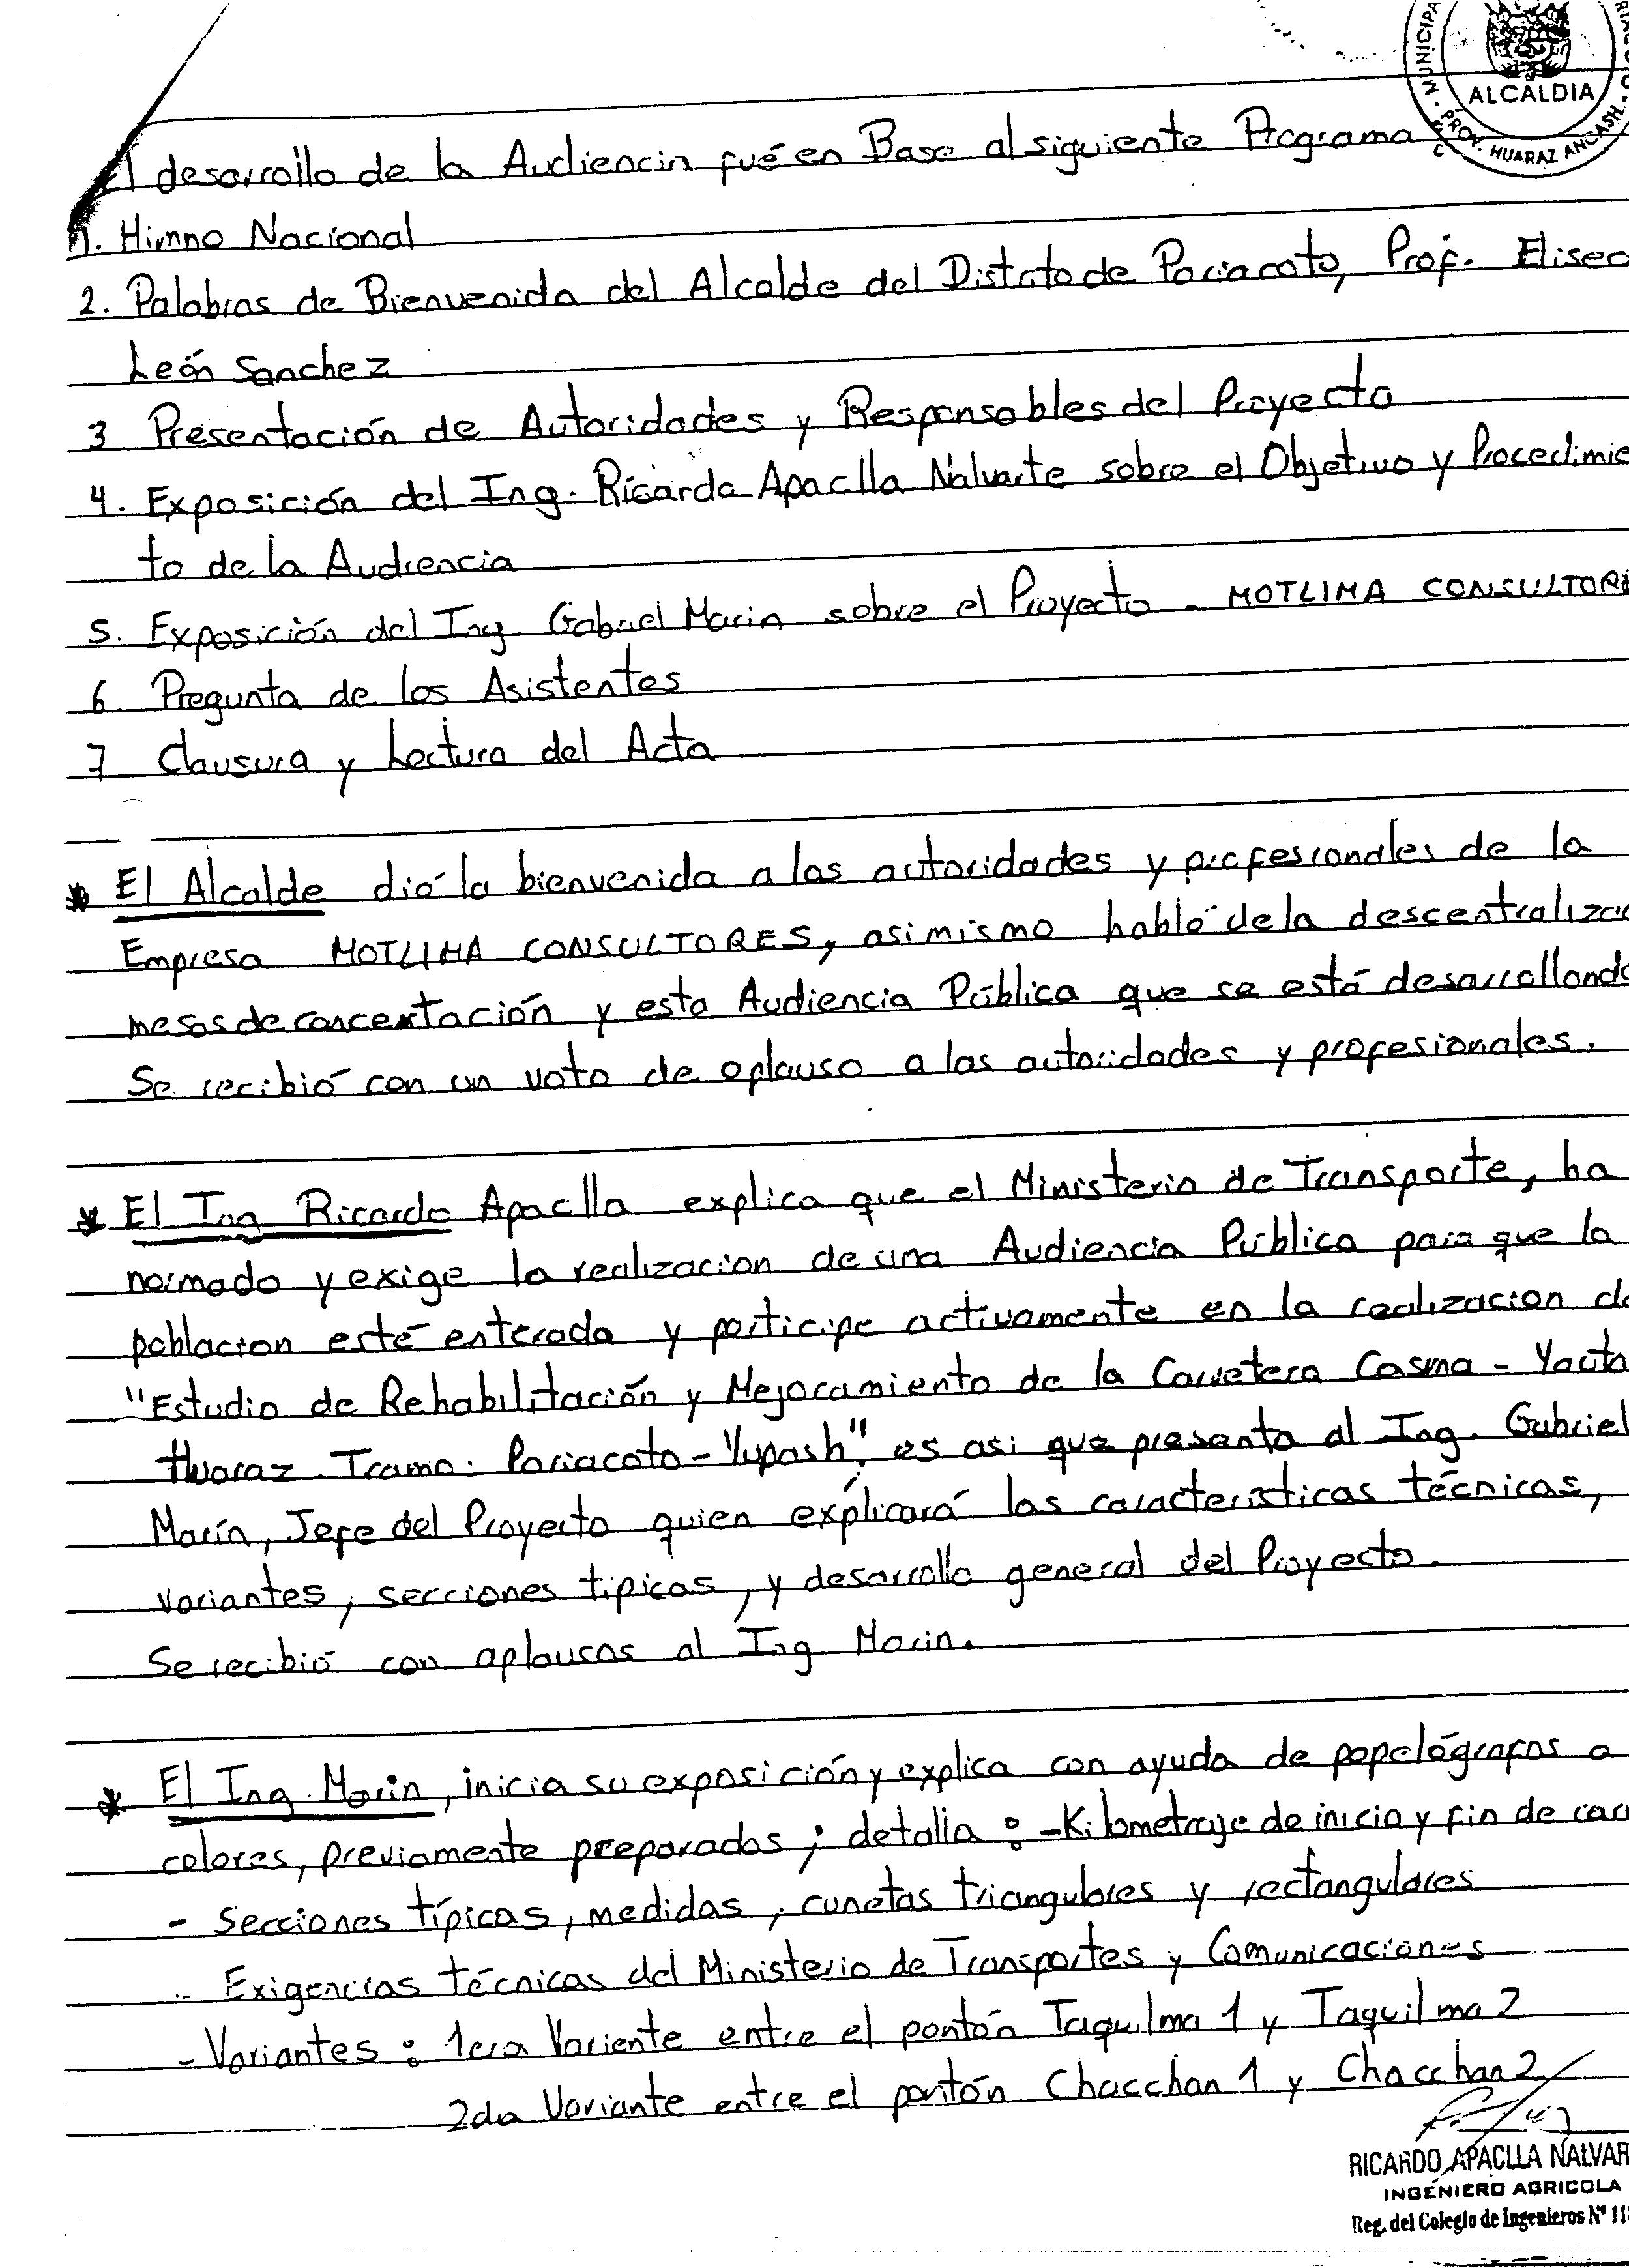 MUNICIPA
ALCALDIA
PROV. HUARAZ ANCASH.
El desarrollo de la Audiencia fué en Base al siguiente Programa
1. Himno Nacional
2. Palabras de Bienvenida del Alcalde del Distrito de Pariacoto, Prof. Eliseo
León Sanchez
3 Presentación de Autoridades y Responsables del Proyecto
4. Exposición del Ing. Ricardo Apaclla Nalvarte sobre el Objetivo y Procedimie
to de la Audiencia
5. Exposición del Ing. Gabriel Marin sobre el Proyecto - MOTLIMA CONSULTORE
6 Pregunta de los Asistentes
7 Clausura y Lectura del Acta
* El Alcalde dió la bienvenida a las autoridades y profesionales de la
Empresa MOTLIMA CONSULTORES, asimismo habló de la descentralizac
mesas de concertación y esta Audiencia Pública que se está desarrollando
Se recibió con un voto de aplauso a las autoridades y profesionales.
* El Ing Ricardo Apaclla explica que el Ministerio de Transporte, ha
normado y exige la realizacion de una Audiencia Pública para que la
poblacion esté enterada y participe activamente en la realizacion de
"Estudio de Rehabilitación y Mejoramiento de la Carretera Casma - Yauta
Huaraz. Tramo: Pariacoto - Yupash". es asi que presenta al Ing. Gabriel
Marín, Jefe del Proyecto quien explicará las características técnicas,
variantes, secciones tipicas, y desarrollo general del Proyecto.
Se recibió con aplausos al Ing Marin.
* El Ing. Marin, inicia su exposición y explica con ayuda de papelógrafos a
colores, previamente preparados; detalla: - Kilometraje de inicio y fin de carr
- Secciones típicas, medidas, cunetas triangulares y rectangulares
- Exigencias técnicas del Ministerio de Transportes y Comunicaciones
- Variantes: 1era Variente entre el pontón Taquilma 1 y Taquilma 2
2da Variante entre el pontón Chacchan 1 y Chacchan 2
RICARDO APACLLA NALVAR
INGENIERO AGRICOLA
Reg. del Colegio de Ingenieros Nº 11